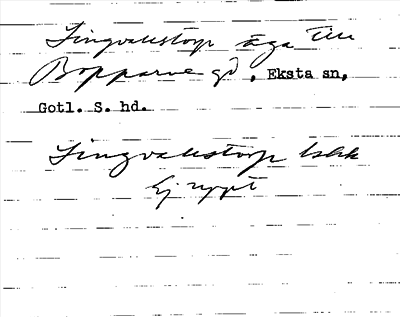 Lingvalstorp äga till
Bopparve gd, Eksta sn,
Gotl. S. hd.
Lingvalstorp
Ej uppt